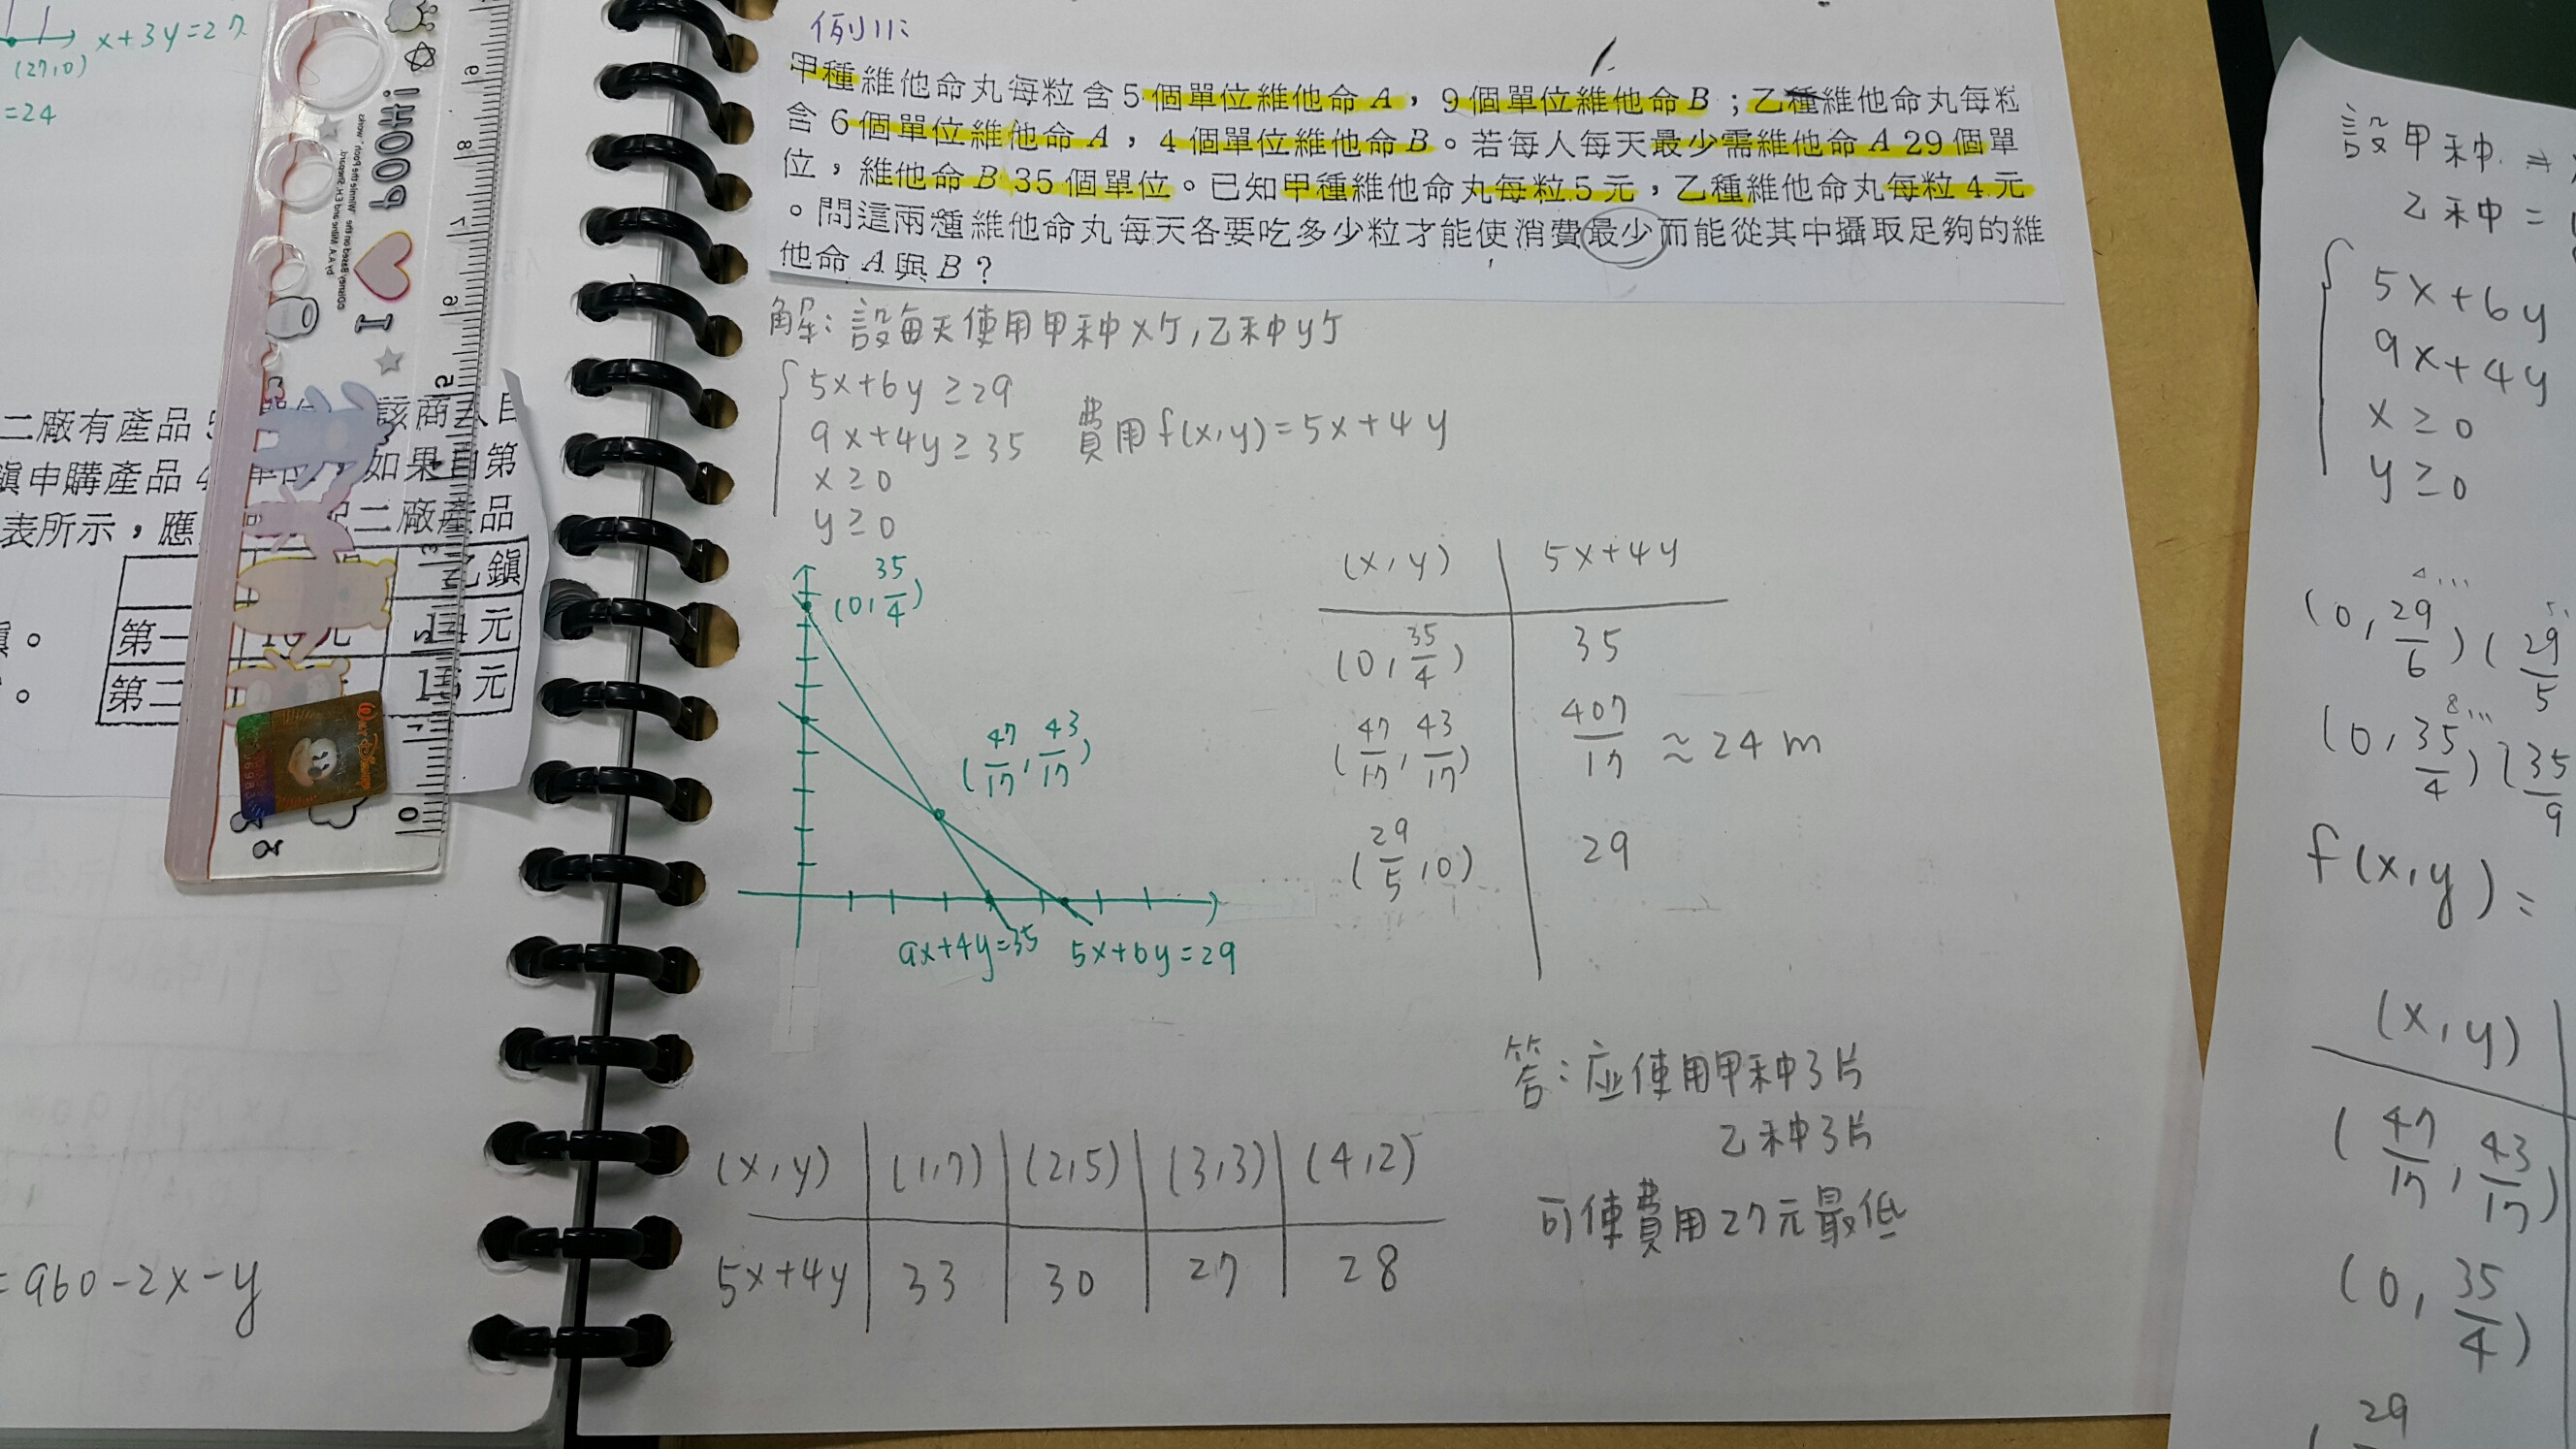 x+3y=27
(27,0)
=24
POOH!
I
二廠有產品
該商
鎮申購產品 4
如果
第
表所示，應
二廠產品
乙鎮
第一
元
14元
第二
15元
=960-2x-y
例11:
甲種維他命丸每粒含5個單位維他命A，9個單位維他命B；乙種維他命丸每粒
含6個單位維他命A，4個單位維他命B。若每人每天最少需維他命A 29個單
位，維他命B 35個單位。已知甲種維他命丸每粒5元，乙種維他命丸每粒4元
。問這兩種維他命丸每天各要吃多少粒才能使消費最少而能從其中攝取足夠的維
他命A與B？
解:設每天使用甲种x亇,乙种y亇
5x+6y≥29
9x+4y≥35 費用f(x,y)=5x+4y
x≥0
y≥0
(0,35/4)
(47/17,43/17)
9x+4y=35 5x+6y=29
(x,y) 5x+4y
(0,35/4) 35
(47/17,43/17) 407/17≈24 m
(29/5,0) 29
(x,y) (1,7) (2,5) (3,3) (4,2)
5x+4y 33 30 27 28
答:应使用甲种3片
乙种3片
可使費用27元最低
設甲种=
乙种=
5x+6y
9x+4y
x≥0
y≥0
(0,29/6)(29/5
(0,35/4)(35/9
f(x,y)=
(x,y)
(47/17,43/17)
(0,35/4)
29